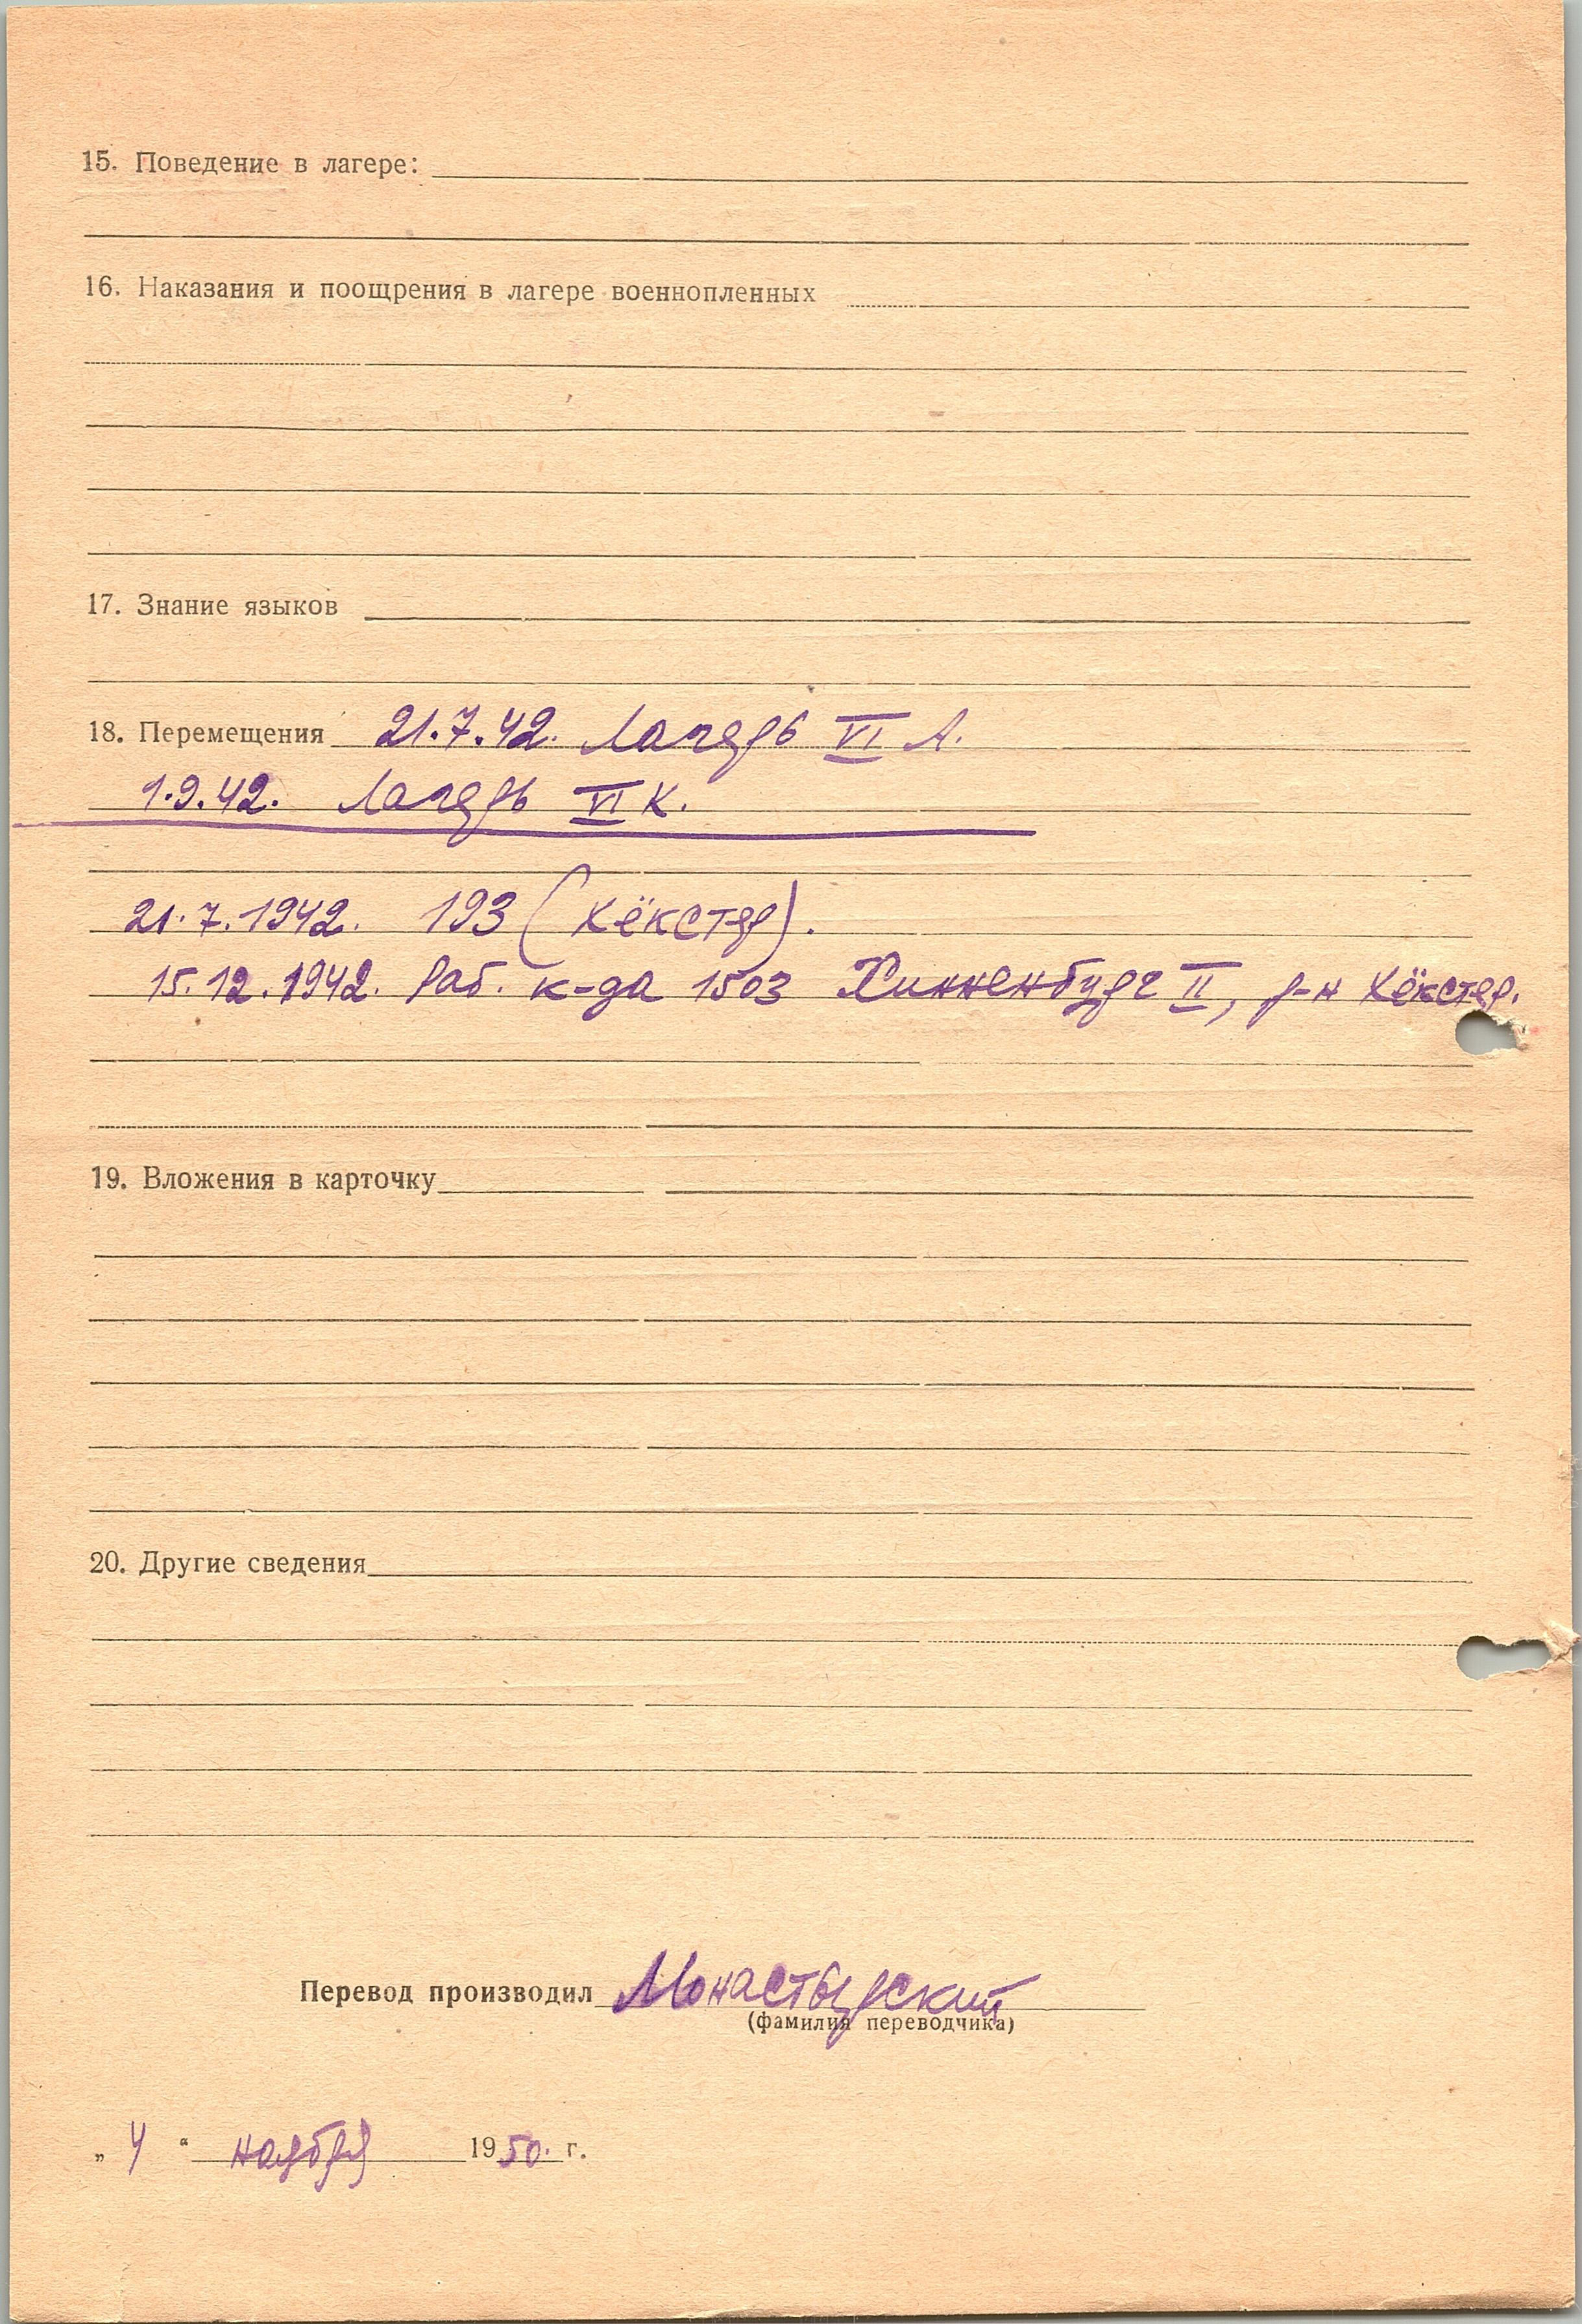 15. Поведение в лагере:
16. Наказания и поощрения в лагере военнопленных
17. Знание языков
18. Перемещения 21.7.42. Лагерь VI А.
1.9.42. Лагерь VI К.
21.7.1942. 193 (Хёкстер).
15.12.1942. Раб. к-да 1503 Хинненбург II, р-н Хёкстер.
19. Вложения в карточку
20. Другие сведения
Перевод производил Монастырский
(фамилия переводчика)
„ 4 “ ноября 1950. г.